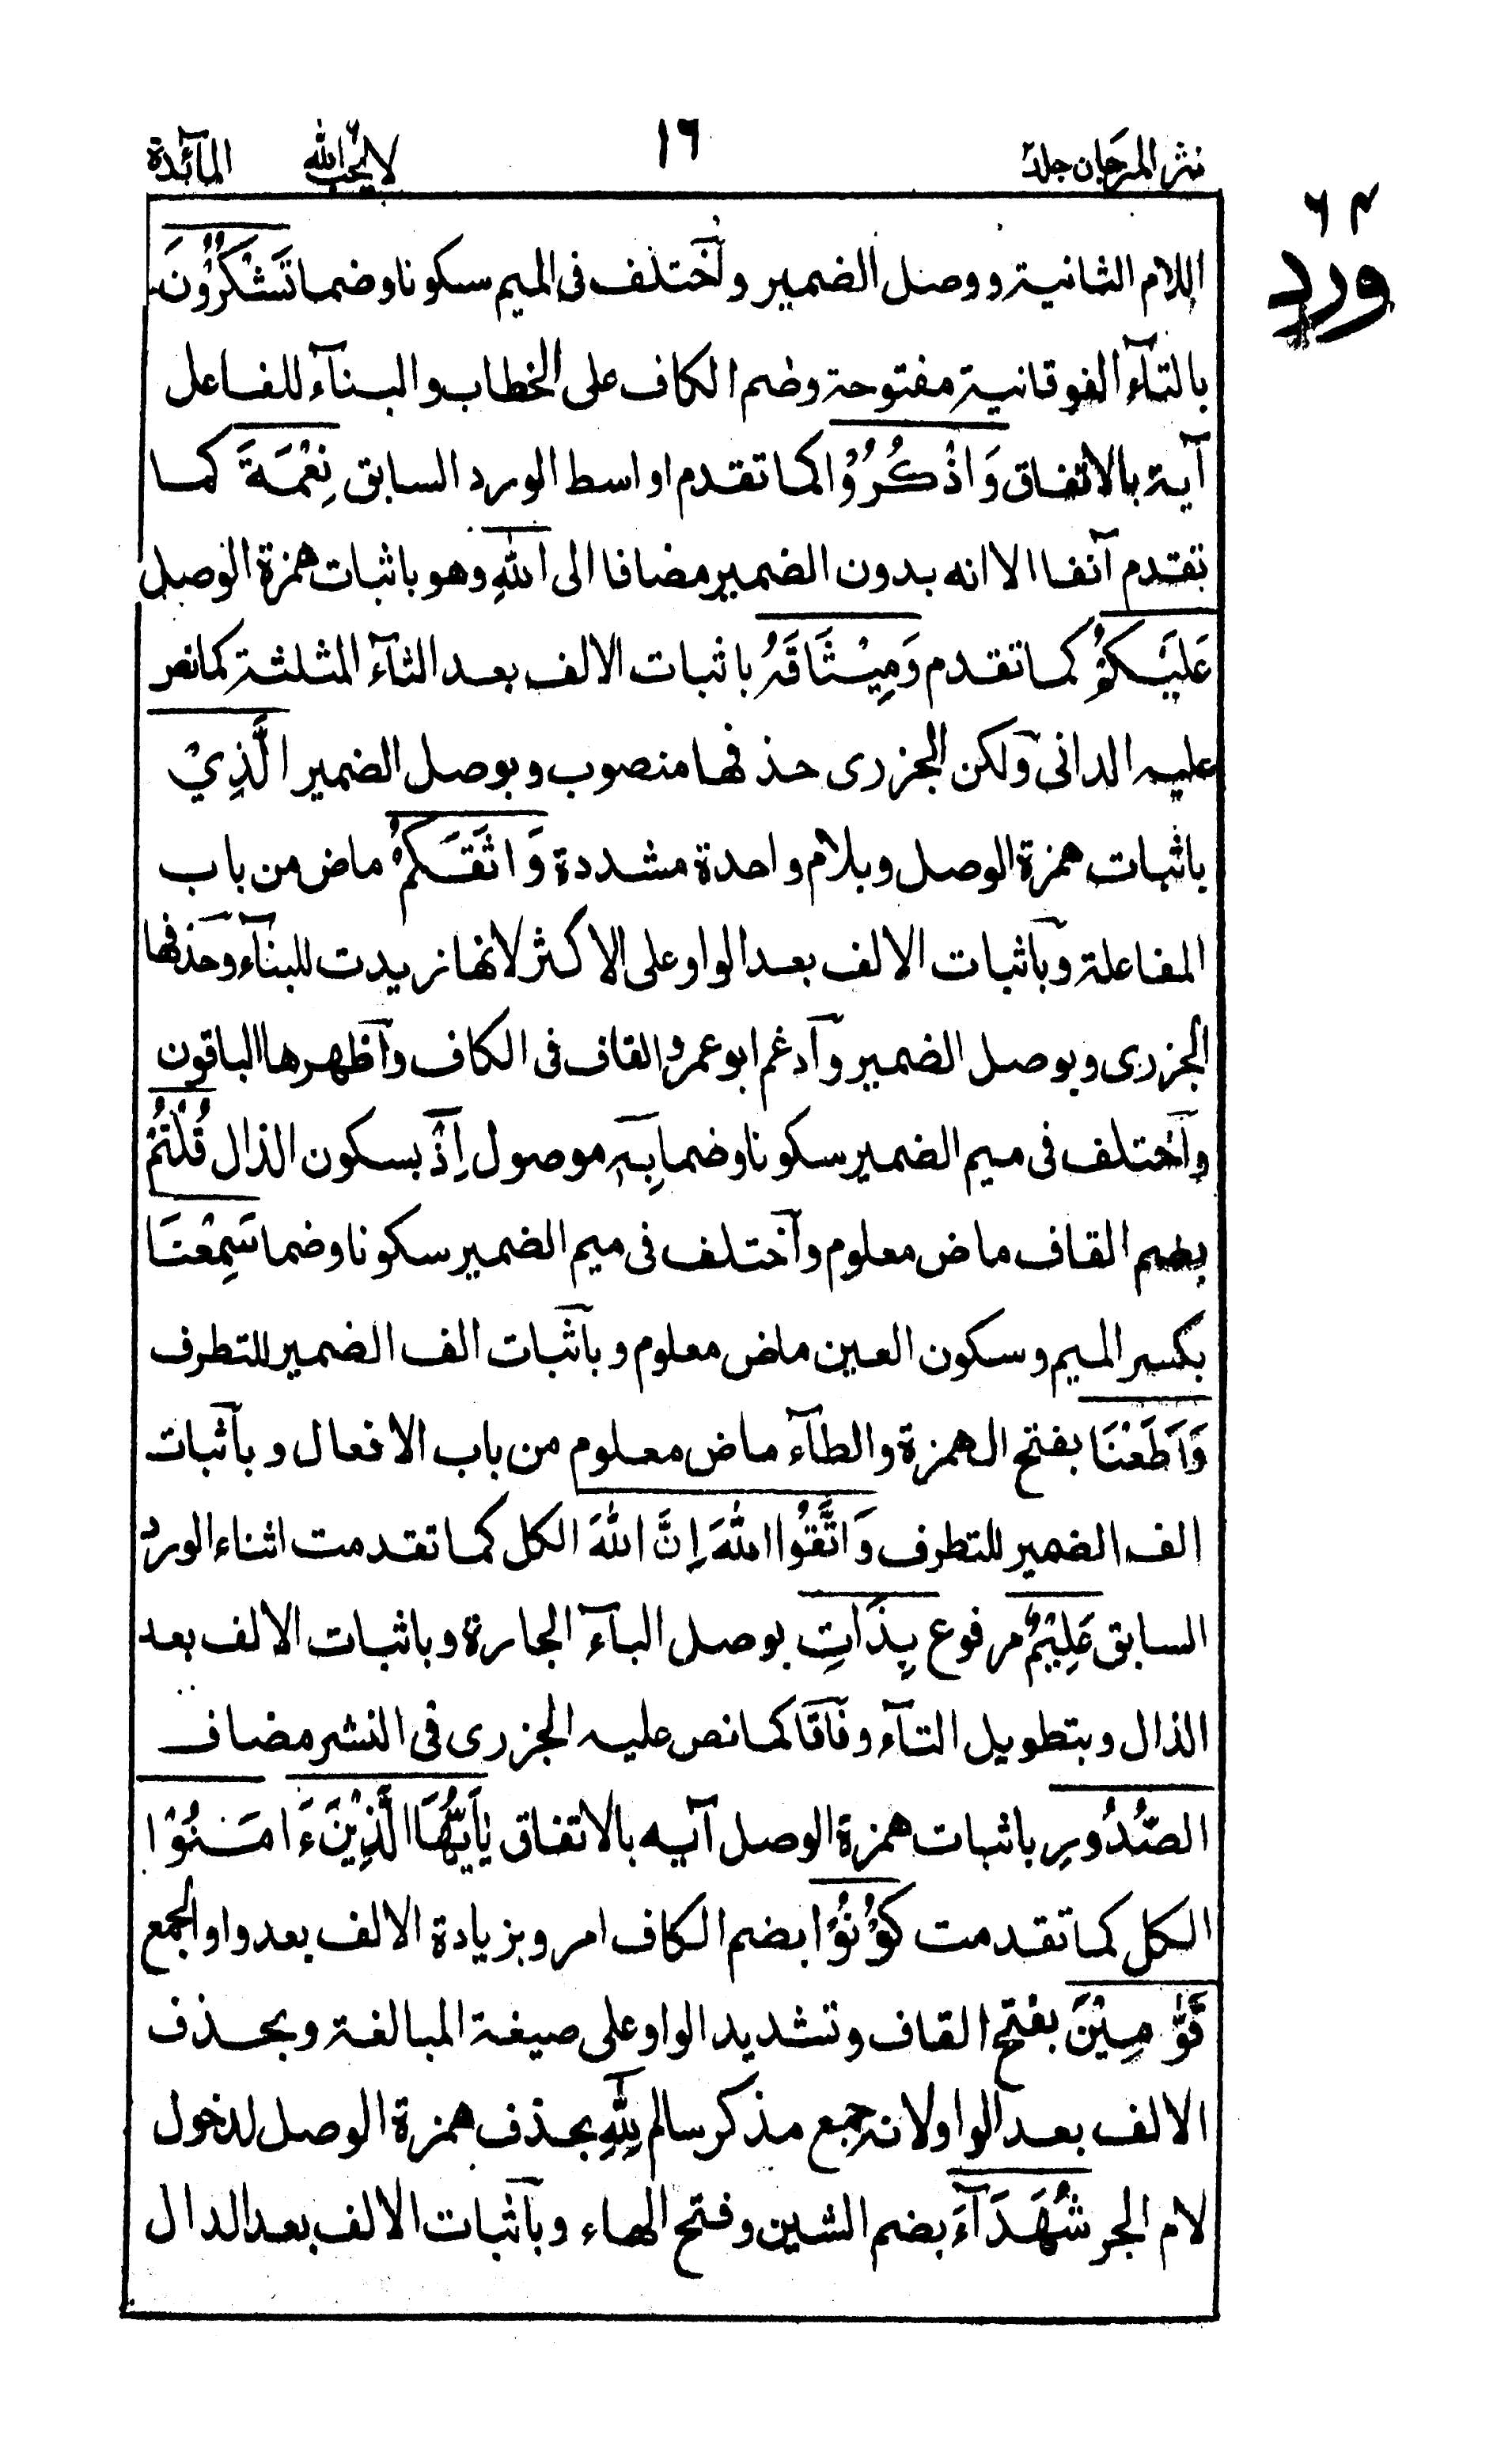 نثر المرجان جلد٢ ١٦ لا يحب الله المآئدة
٦٤
ورد
اللام الثانية ووصل الضمير وآختلف فى الميم سكونا وضما تَشْكُرُوْنَ
بالتآء الفوقانية مفتوحة وضم الكاف على الخطاب والبنآء للفاعل
آية بالاتفاق وَاذْكُرُوْا كما تقدم اواسط الورد السابق نِعْمَةَ كما
تقدم آنفا الا انه بدون الضمير مضافا الى اللهِ وهو باثبات همزة الوصل
عَلَيْكُمْ كما تقدم وَمِيْثَاقَهُ باثبات الالف بعد الثآء المثلثة كما نص
عليه الدانى ولكن الجزرى حذفها منصوب وبوصل الضمير الَّذِيْ
باثبات همزة الوصل وبلام واحدة مشددة وَاثَقَكُمْ ماض من باب
المفاعلة وبآثبات الالف بعد الواو على الاكثر لانها زيدت للبنآء وحذفها
الجزرى وبوصل الضمير وآدغم ابو عمرو القاف فى الكاف وآظهرها الباقون
وآختلف فى ميم الضمير سكونا وضما بِهٖ موصول اِذْ بسكون الذال قُلْتُمْ
بضم القاف ماض معلوم وآختلف فى ميم الضمير سكونا وضما سَمِعْنَا
بكسر الميم وسكون العين ماض معلوم وبآثبات الف الضمير للتطرف
وَاَطَعْنَا بفتح الهمزة والطآء ماض معلوم من باب الافعال وبآثبات
الف الضمير للتطرف وَاتَّقُوا اللهَ اِنَّ اللهَ الكل كما تقدمت اثناء الورد
السابق عَلِيْمٌ مرفوع بِذَاتِ بوصل البآء الجارة وباثبات الالف بعد
الذال وبتطويل التآء وفاقا كما نص عليه الجزرى فى النشر مضاف
الصُّدُورِ باثبات همزة الوصل آيه بالاتفاق يٰاَيُّهَا الَّذِيْنَ ءَامَنُوْا
الكل كما تقدمت كُوْنُوْا بضم الكاف امر وبزيادة الالف بعد واو الجمع
قَوّٰمِيْنَ بفتح القاف وتشديد الواو على صيغة المبالغة وبحذف
الالف بعد الواو لانه جمع مذكر سالم لِلّٰهِ بحذف همزة الوصل لدخول
لام الجر شُهَدَآءَ بضم الشين وفتح الهاء وبآثبات الالف بعد الدال